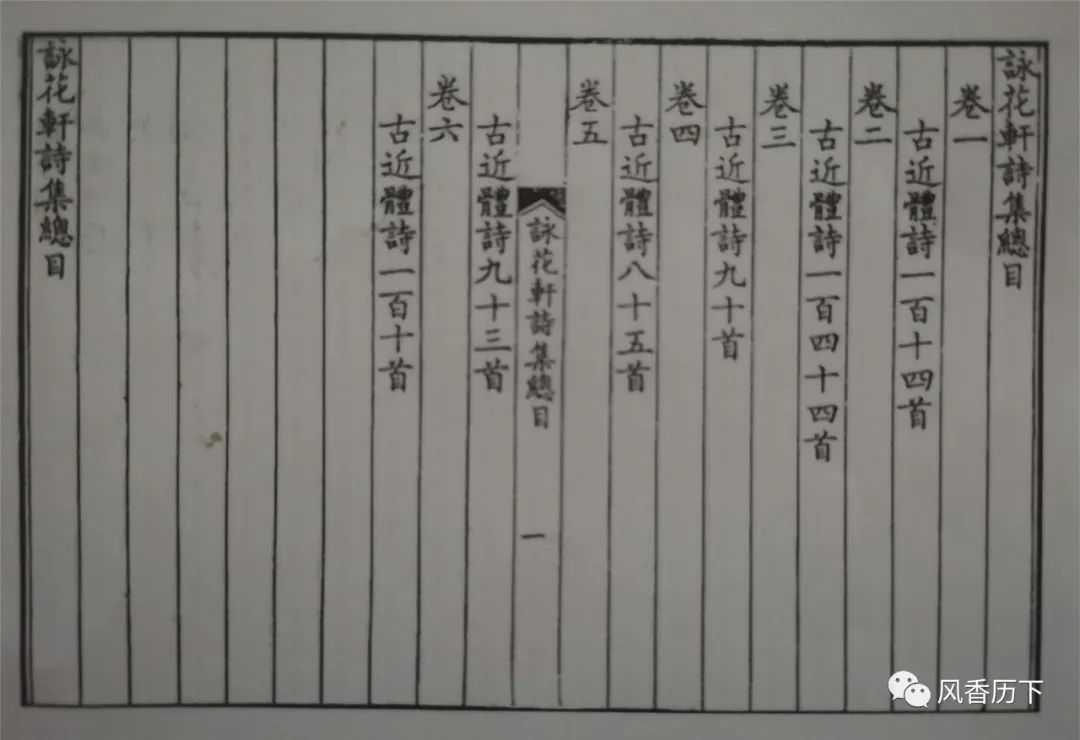 詠花軒詩集總目
卷一
古近體詩一百十四首
卷二
古近體詩一百四十四首
卷三
古近體詩九十首
卷四
古近體詩八十五首
卷五
詠花軒詩集總目
一
古近體詩九十三首
卷六
古近體詩一百十首
詠花軒詩集總目
风香历下